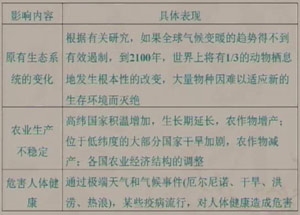 影响内容
具体表现
原有生态系
统的变化
根据有关研究，如果全球气候变暖的趋势得不到
有效遏制，到2100年，世界上将有1/3的动物栖息
地发生根本性的改变，大量物种因难以适应新的
生存环境而灭绝
农业生产
不稳定
高纬国家积温增加，生长期延长，农作物增产；
位于低纬度的大部分国家干旱加剧，农作物减
产；各国农业经济结构的调整
危害人体健
康
通过极端天气和气候事件(厄尔尼诺、干旱、洪
涝、热浪)，某些疫病流行，对人体健康造成危害